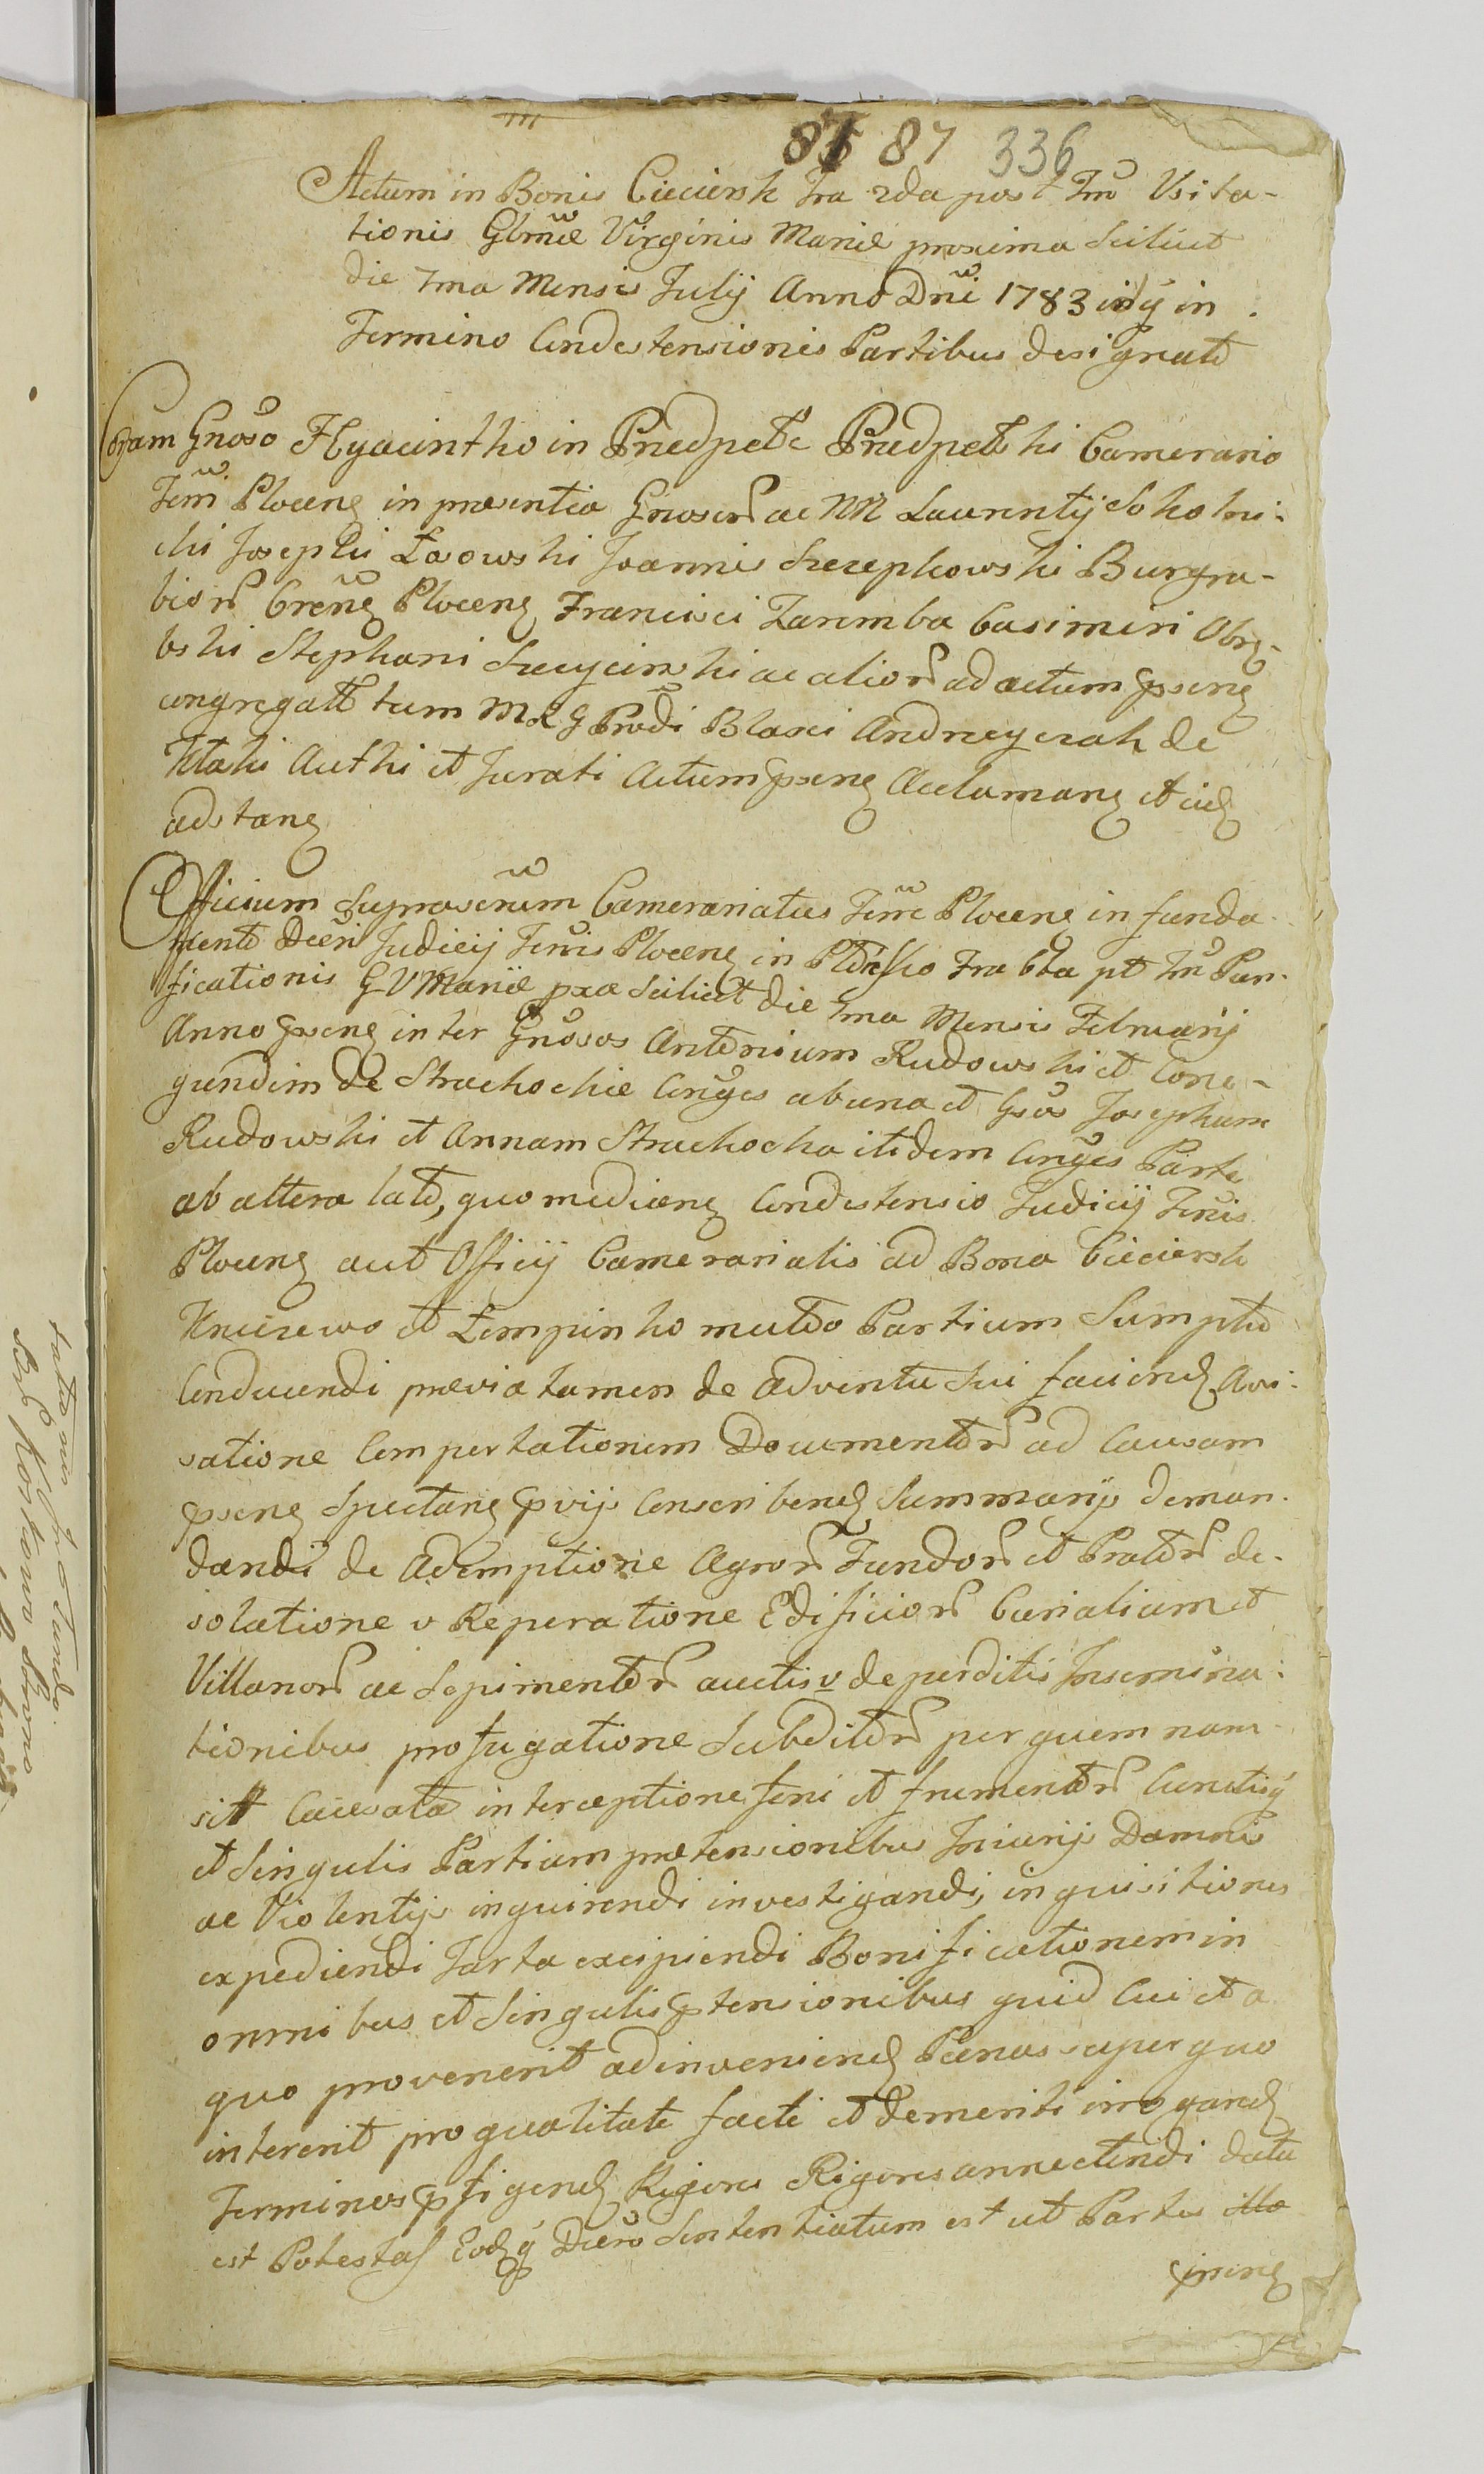 87 87 336
Actum in Bonis Cieciersk fra 2da post Fm̃ Visita-
tionis Glo̅ræ Virginis Mariæ proxima Scilicet
die 7ma Mensis Julij Anno Dn̅i 1783 in
Termino Condestensionis Partibus designato
Coram Gnoso Hyacintho in Przedpełce Przedpełski Camerario
Terræ Plocen in præsentia Gnosor ac NN Laurentij Sokolni-
cki Josephi Łosowski Joannis Szczepkowski Burgra-
bior Cren Plocen Francisci Zaremba Casimiri Obrę-
bski Stephani Szczycinski ac alior ad actum psens
congregat tum M̃ & Providi Blasei Andrzeyczak de
Ktaki Authi et Jurati Actum psens Acclaman et eid
adstan
Officium Suprascriptum Camerariatus Terræ Plocen in funda-
mento Decri Judicij Terris Plocen in fra 6ta pt Fm̃ Puri-
ficationis G V Mariæ pxa Scilicet die 7ma Mensis Februarij
Anno psens inter Gnosos Antonium Rudowski et Cone-
gundim de Strachockie Cnges ab una et Gsos Josephum
Rudowski et Annam Strachocka itidem Cnges Parte
ab altera lato, quo median Condestensio Judicij Terris
Plocen aut Officij Camerarialis ad Bona Cieciersk
Kuczewo et Łempinko mutuo Partium Sumptu
Conducendi prævia tamen de adventu sui faciend Avi-
satione Comportationem Documentor ad Causam
psen Spectan pvijs Conscribend Summarijs deman-
dandi de Ademptione Agror Fundor et Prator de-
solatione v Reperatione Edificior Curialium et
Villanor ac Sepimentor auctis v deperditis Insemina-
tionibus profugatione Subditor per quem nam
sit Causata interceptione feni et frumentor Cunctisq
et Singulis Partium prætensionibus Iniurijs Damnis
ac Violentijs inquirendi investigandi, inquisitiones
expediendi Jurta excipiendi Bonificationem in
omnibus et Singulis ptensionibus quid Cui et a
quo provenerit adinveniend Pænas super quo
intererit pro qualitate facti et demeriti irrogand
Terminos pfigend Rigores annectendi data
est Potestas Eodq Decro Sententiatum est ut Partes illæ
psen